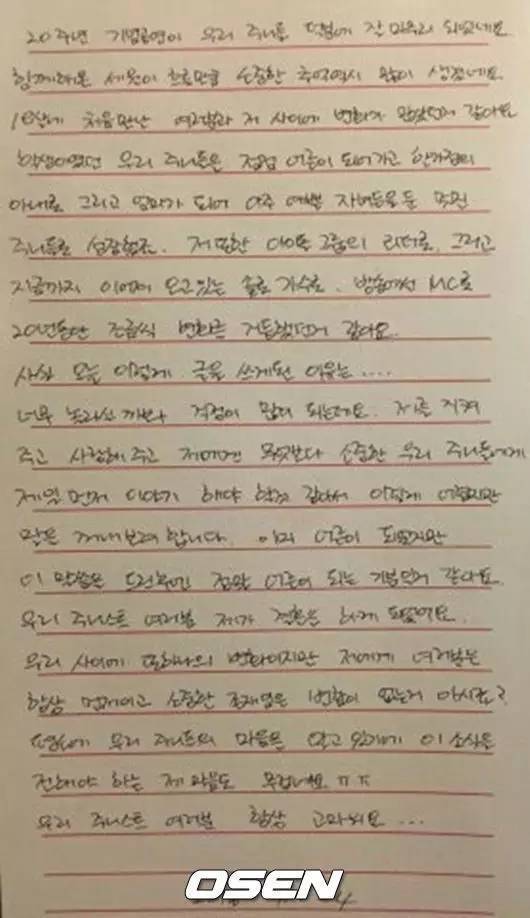 20주년 기념공연이 우리 주니들 덕분에 잘 마무리 되었네요.
함께해온 세월이 흐른만큼 소중한 추억역시 많이 생겼네요.
18살에 처음만난 여러분과 저 사이에 변화가 많았던거 같아요
학생이였던 우리 주니들은 점점 어른이 되어가고 한가정의
아내로 그리고 엄마가 되어 아주 예쁜 자녀들을 둔 멋진
주니들로 성장했죠. 저 또한 아이돌 그룹의 리더로, 그리고
지금까지 이어져 오고있는 솔로 가수로, 방송에선 MC로
20년동안 조금씩 변화를 거듭했던거 같아요.
사실 오늘 이렇게 글을 쓰게된 이유는....
너무 놀라실까봐 걱정이 많이 되는데요. 저를 지켜
주고 사랑해 주고 저에겐 무엇보다 소중한 우리 주니들에게
제일 먼저 이야기 해야 할것 같아서 이렇게 어렵지만
말을 꺼내보려 합니다. 이미 어른이 되었지만
이 말씀을 드린후엔 정말 어른이 되는 기분인거 같아요.
우리 주니스트 여러분 제가 결혼을 하게 되었어요.
우리 사이에 또하나의 변화이지만 저에게 여러분은
항상 먼저이고 소중한 존재임은 변함이 없는거 아시죠?
우리 주니들의 마음을 알고 있기에 이 소식을
전해야 하는 제 마음도 무겁네요 ㅠㅠ
우리 주니스트 여러분 항상 고마워요...
OSEN